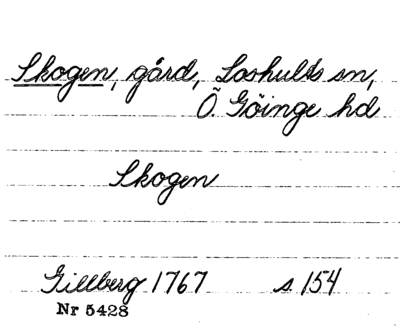 Skogen, gård, Loshults sn,
Ö. Göinge hd
Skogen
Gillberg 1767 s. 154
Nr 5428